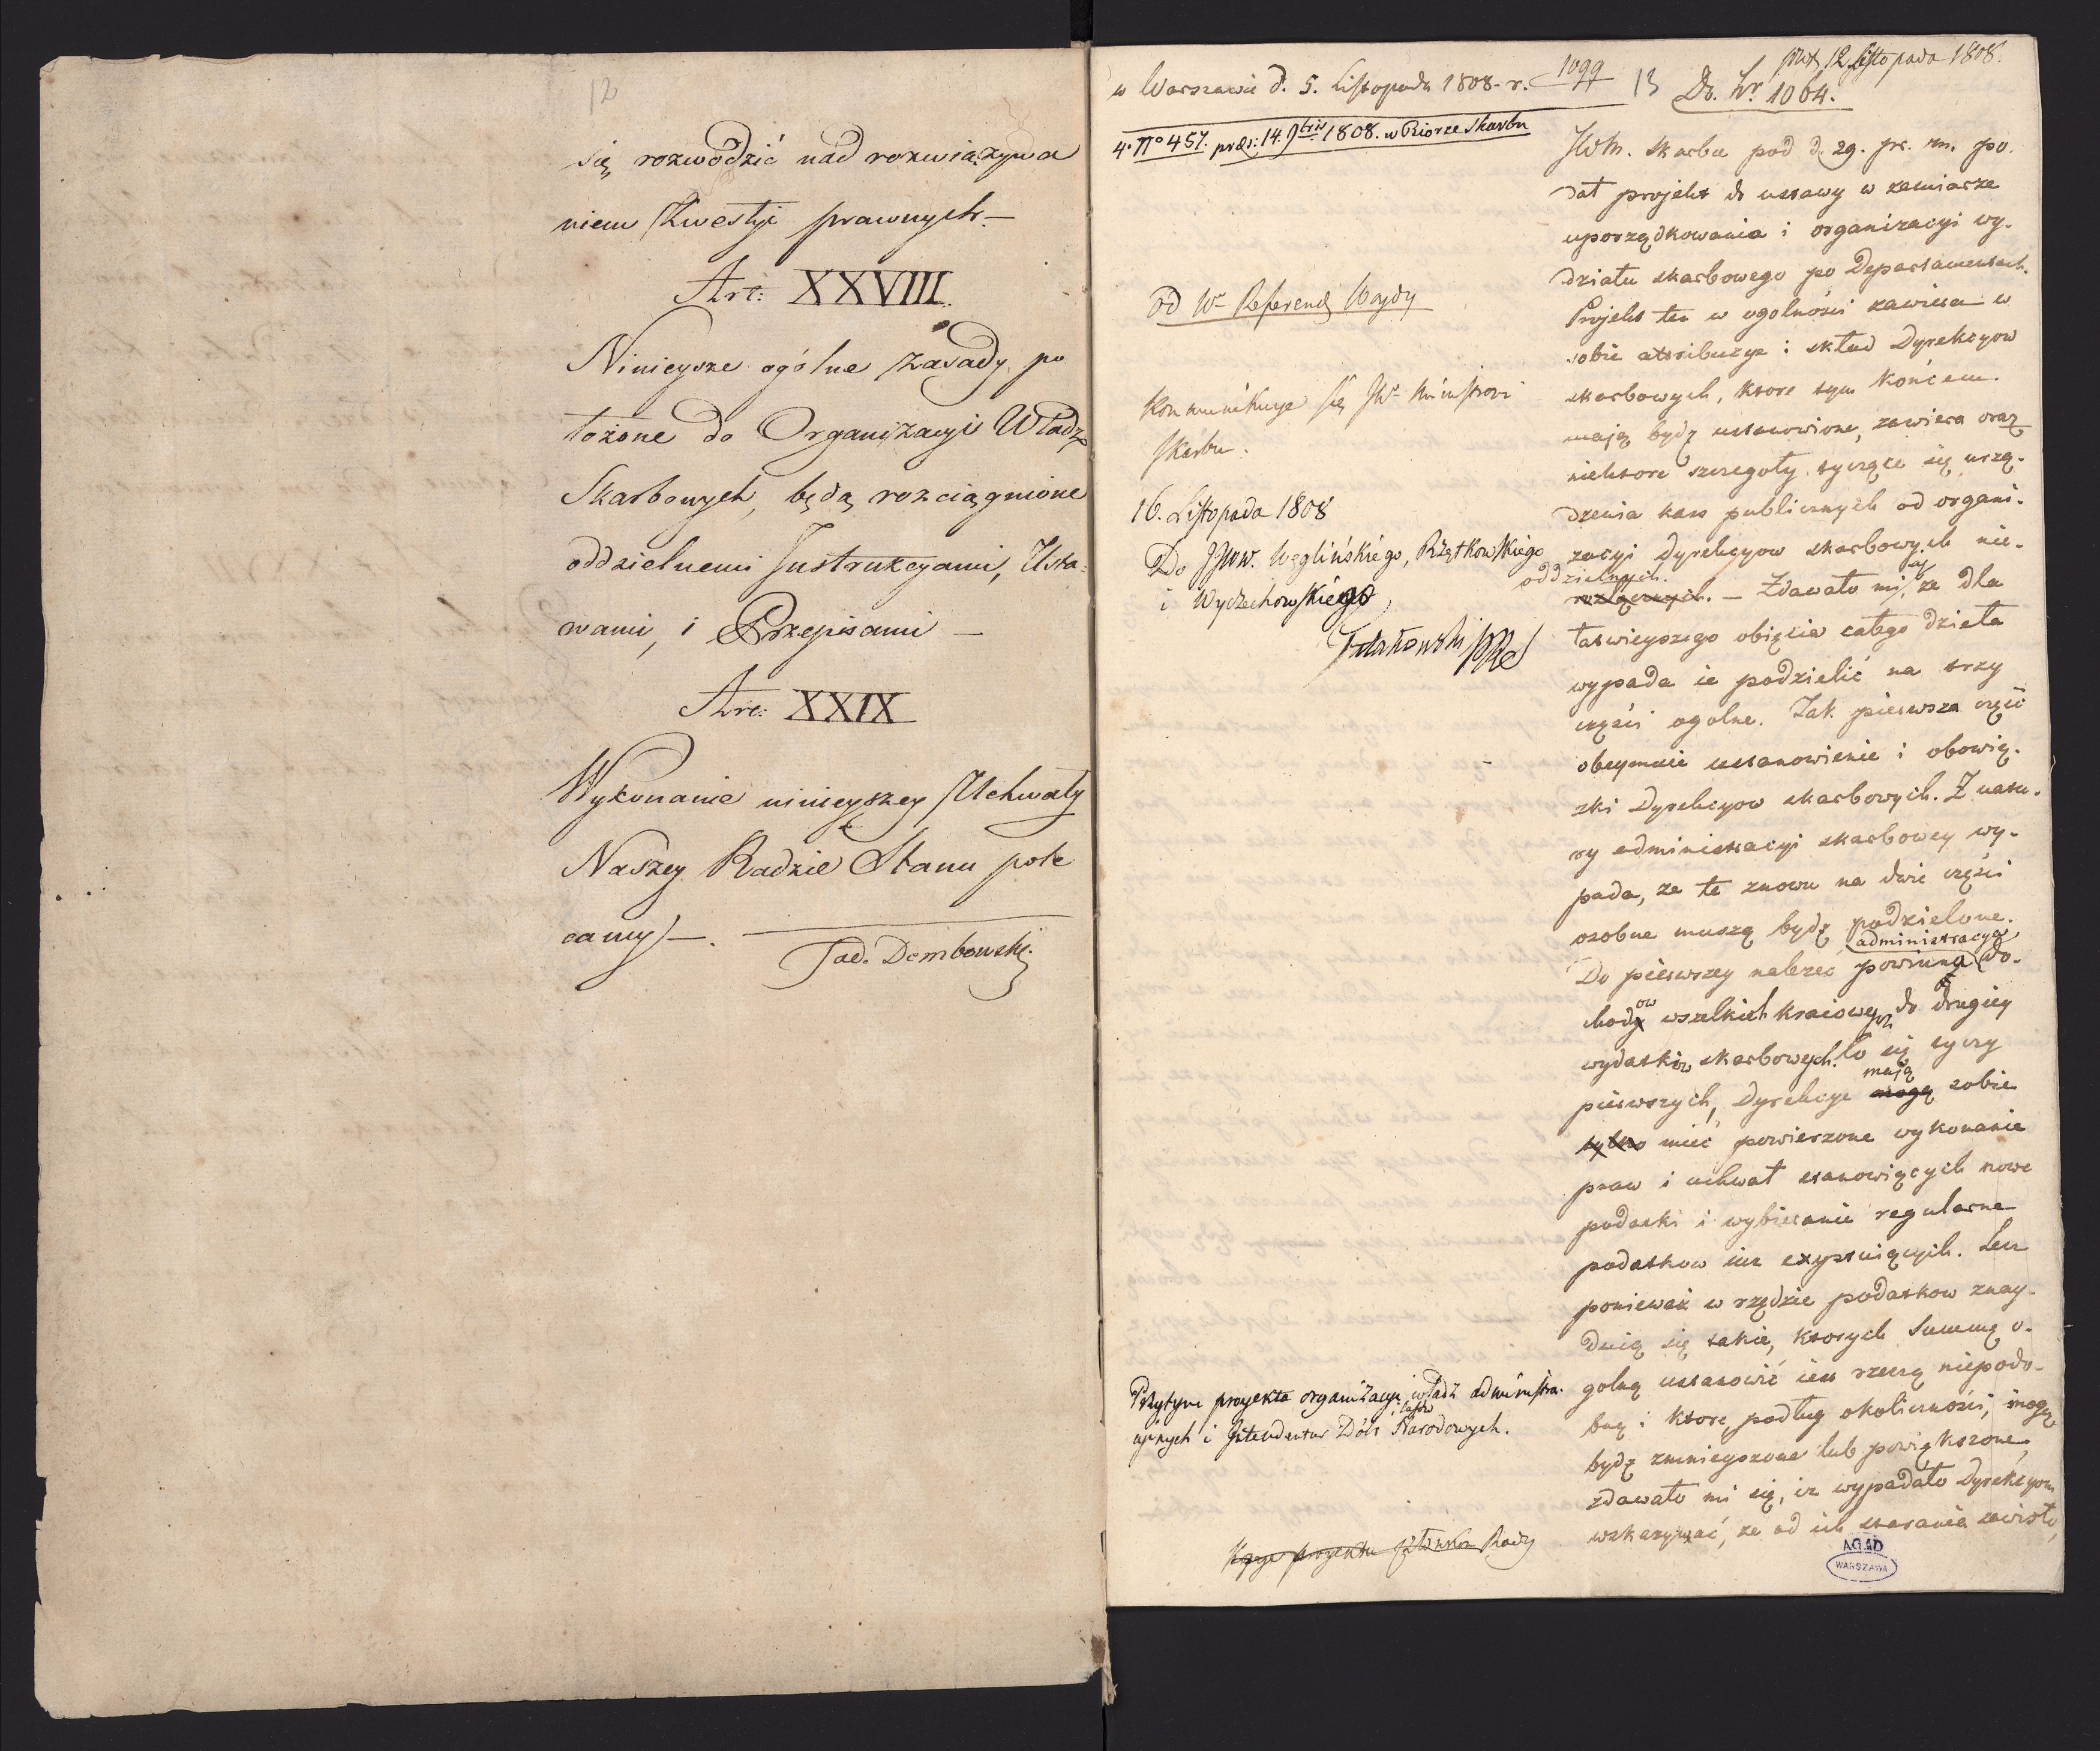 12
się rozwodzić nad rozwiązywa
niem Kwestyi prawnych –
Art: XXVIII.
Ninieysze ogólne Zasady po
łożone do Organizacyi Władz
Skarbowych, będą rozciągnione
oddzielnemi Instrukcyami, Usta=
wami, i Przepisami –
Art: XXIX
Wykonanie ninieyszey Uchwały
Naszey Radzie Stanu pole
camy –.
Tad. Dembowski
w Warszawie d. 5. Listopada 1808. r. 1099
13
12 Listopada 1808.
Do. Nr. 1064.
4. No 457. präs: 14. 9bris 1808. w Biorze Skarbu
od Wo Referend
Kommunikuje się JW Ministrowi
Skarbu.
16. Listopada 1808
Do JJWW. Węglińskiego,
i Wyczechowskiego
Przytym proyekta organizacyi władz administra.
cyinych i Intendentur Dóbr i lasów Narodowych.
Rady
JWM. skarbu pod d. 29. pr. m. po.
dał projekt do ustawy w zamiarze
uporządkowania i organizacyi wy.
działu skarbowego po Departamentach.
Projekt ten w ogolności zawiera w
sobie attribucye i skład Dyrekcyow
skarbowych, ktore tym końcem
mają bydź ustanowione, zawiera oraz
niektore szczegoły tyczące się urzą.
dzenia kass publicznych od organi.
zacyi Dyrekcyow skarbowych nie.
rozłącznych. oddzielnych. – Zdawało mi się, że dla
łatwieyszego obięcia całego dzieła
wypada ie podzielić na trzy
części ogolne. Jak pierwsza część
obeymuie ustanowienie i obowią.
zki Dyrekcyow skarbowych. Z natu.
ry administracyi skarbowey wy.
pada, że te znowu na dwie części
osobne muszą bydź podzielone.
Do pierwszey należeć powinna administracya do.
chodow wszelkich kraiowych, do drugiey
wydatkow skarbowych. Co się tyczy
pierwszych, Dyrekcye mogą mają sobie
tylko mieć powierzone wykonanie
praw i uchwał stanowiących nowe
podatki i wybieranie regularne
podatkow iuż exystuiących. Lecz
ponieważ w rzędzie podatkow znay.
duią się takie, ktorych Summę o.
golną ustanowić iest rzeczą niepodo.
bną i ktore, podług okoliczności, mogą
bydź zmnieyszone lub powiększone,
zdawało mi się, iż wypadało Dyrekcyom
wskazywać, że od ich starania zawisło,
AGAD
WARSZAWA